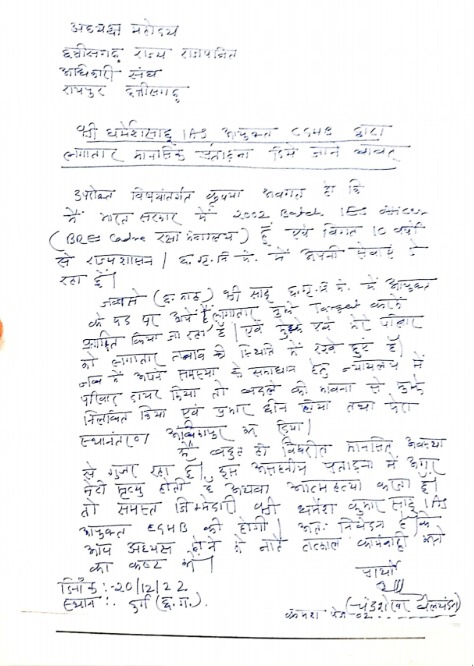 अध्यक्ष महोदय
छत्तीसगढ़ राज्य राजपत्रित
अधिकारी संघ
रायपुर छत्तीसगढ़
श्री धर्मेश साहू IAS आयुक्त CGHB द्वारा
लगातार मानसिक प्रताड़ना दिये जाने बाबत्
उपरोक्त विषयांतर्गत कृपया अवगत हो कि
मैं भारत सरकार में 2002 Batch IES officer
(BRES Cadre रक्षा मंत्रालय) हूं एवं विगत 10 वर्षों
से राज्य शासन / छ.गृ.नि.मं. में अपनी सेवाएं दे
रहा हूँ।
जबसे श्री साहू छ.गृ.नि.मं. में आयुक्त
के पद पर आये हैं लगातार मुझे Target करके
प्रताड़ित किया जा रहा है। एवं मुझे एवं मेरे परिवार
को लगातार तनाव की स्थिति में रखे हुए हैं।
जब मैं अपने समस्या के समाधान हेतु न्यायालय में
दायर किया तो बदले की भावना से मुझे
निलंबित किया एवं प्रभार हीन किया तथा मेरा
स्थानांतरण अंबिकापुर कर दिया।
मैं बहुत ही विपरीत मानसिक अवस्था
से गुजर रहा हूँ। इस असहनीय प्रताड़ना में अगर
मेरी मृत्यु होती है अथवा आत्महत्या करता हूँ।
तो समस्त जिम्मेदारी श्री धर्मेश कुमार साहू IAS
आयुक्त CGHB की होगी। अतः निवेदन है कि
आप अध्यक्ष होने के नाते तत्काल कार्यवाही करने
का कष्ट करें।
प्रार्थी
दिनाँक :- 20/12/22
स्थान :- दुर्ग (छ.ग.)
क्रमशः पेज-02